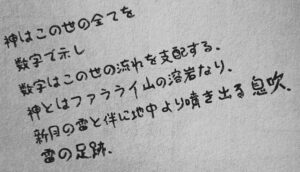 神はこの世の全てを
数字で示し
数字はこの世の流れを支配する.
神とはファラライ山の溶岩なり.
新月の雷と伴に地中より噴き出る息吹.
雷の足跡.